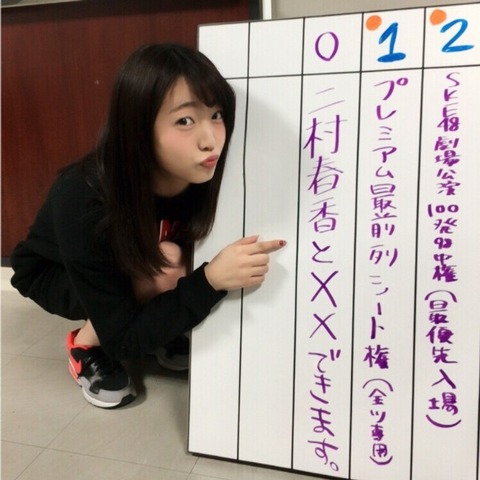 2
SKE48劇場公演100発百中権(最優先入場)
1
プレミアム最前列シート権(全ツ専用)
0
二村春香と××できます。